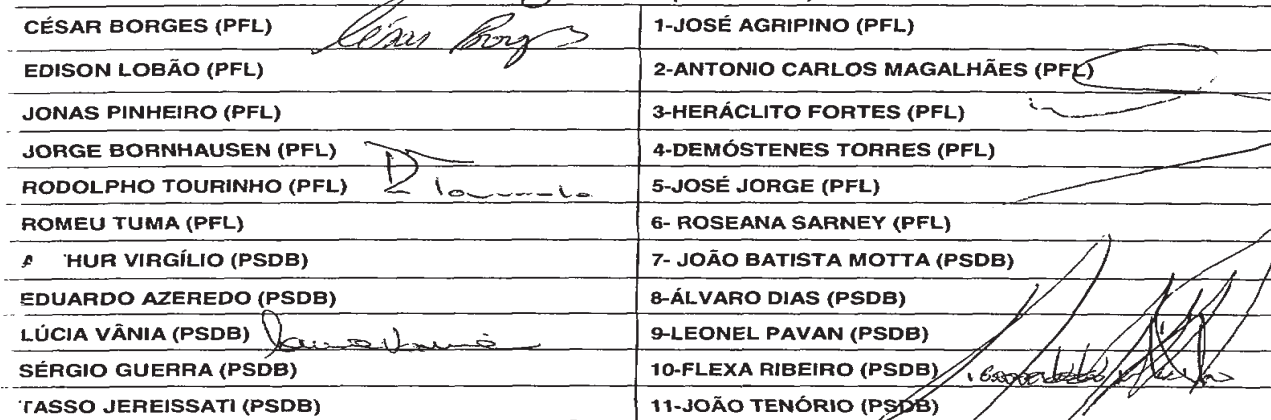 CÉSAR BORGES (PFL) César Borges 1-JOSÉ AGRIPINO (PFL)
EDISON LOBÃO (PFL) 2-ANTONIO CARLOS MAGALHÃES (PFL)
JONAS PINHEIRO (PFL) 3-HERÁCLITO FORTES (PFL)
JORGE BORNHAUSEN (PFL) 4-DEMÓSTENES TORRES (PFL)
RODOLPHO TOURINHO (PFL) 5-JOSÉ JORGE (PFL)
ROMEU TUMA (PFL) 6- ROSEANA SARNEY (PFL)
HUR VIRGÍLIO (PSDB) 7- JOÃO BATISTA MOTTA (PSDB)
EDUARDO AZEREDO (PSDB) 8-ÁLVARO DIAS (PSDB)
LÚCIA VÂNIA (PSDB) 9-LEONEL PAVAN (PSDB)
SÉRGIO GUERRA (PSDB) 10-FLEXA RIBEIRO (PSDB)
TASSO JEREISSATI (PSDB) 11-JOÃO TENÓRIO (PSDB)